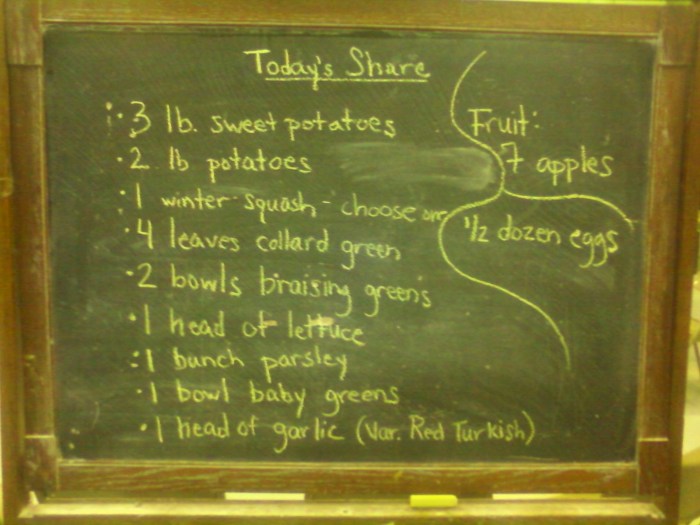 Today's Share
· 3 lb. sweet potatoes
· 2 lb potatoes
· 1 winter squash - choose one
· 4 leaves collard green
· 2 bowls braising greens
· 1 head of lettuce
· 1 bunch parsley
· 1 bowl baby greens
· 1 head of garlic (Var. Red Turkish)
Fruit:
7 apples
1/2 dozen eggs